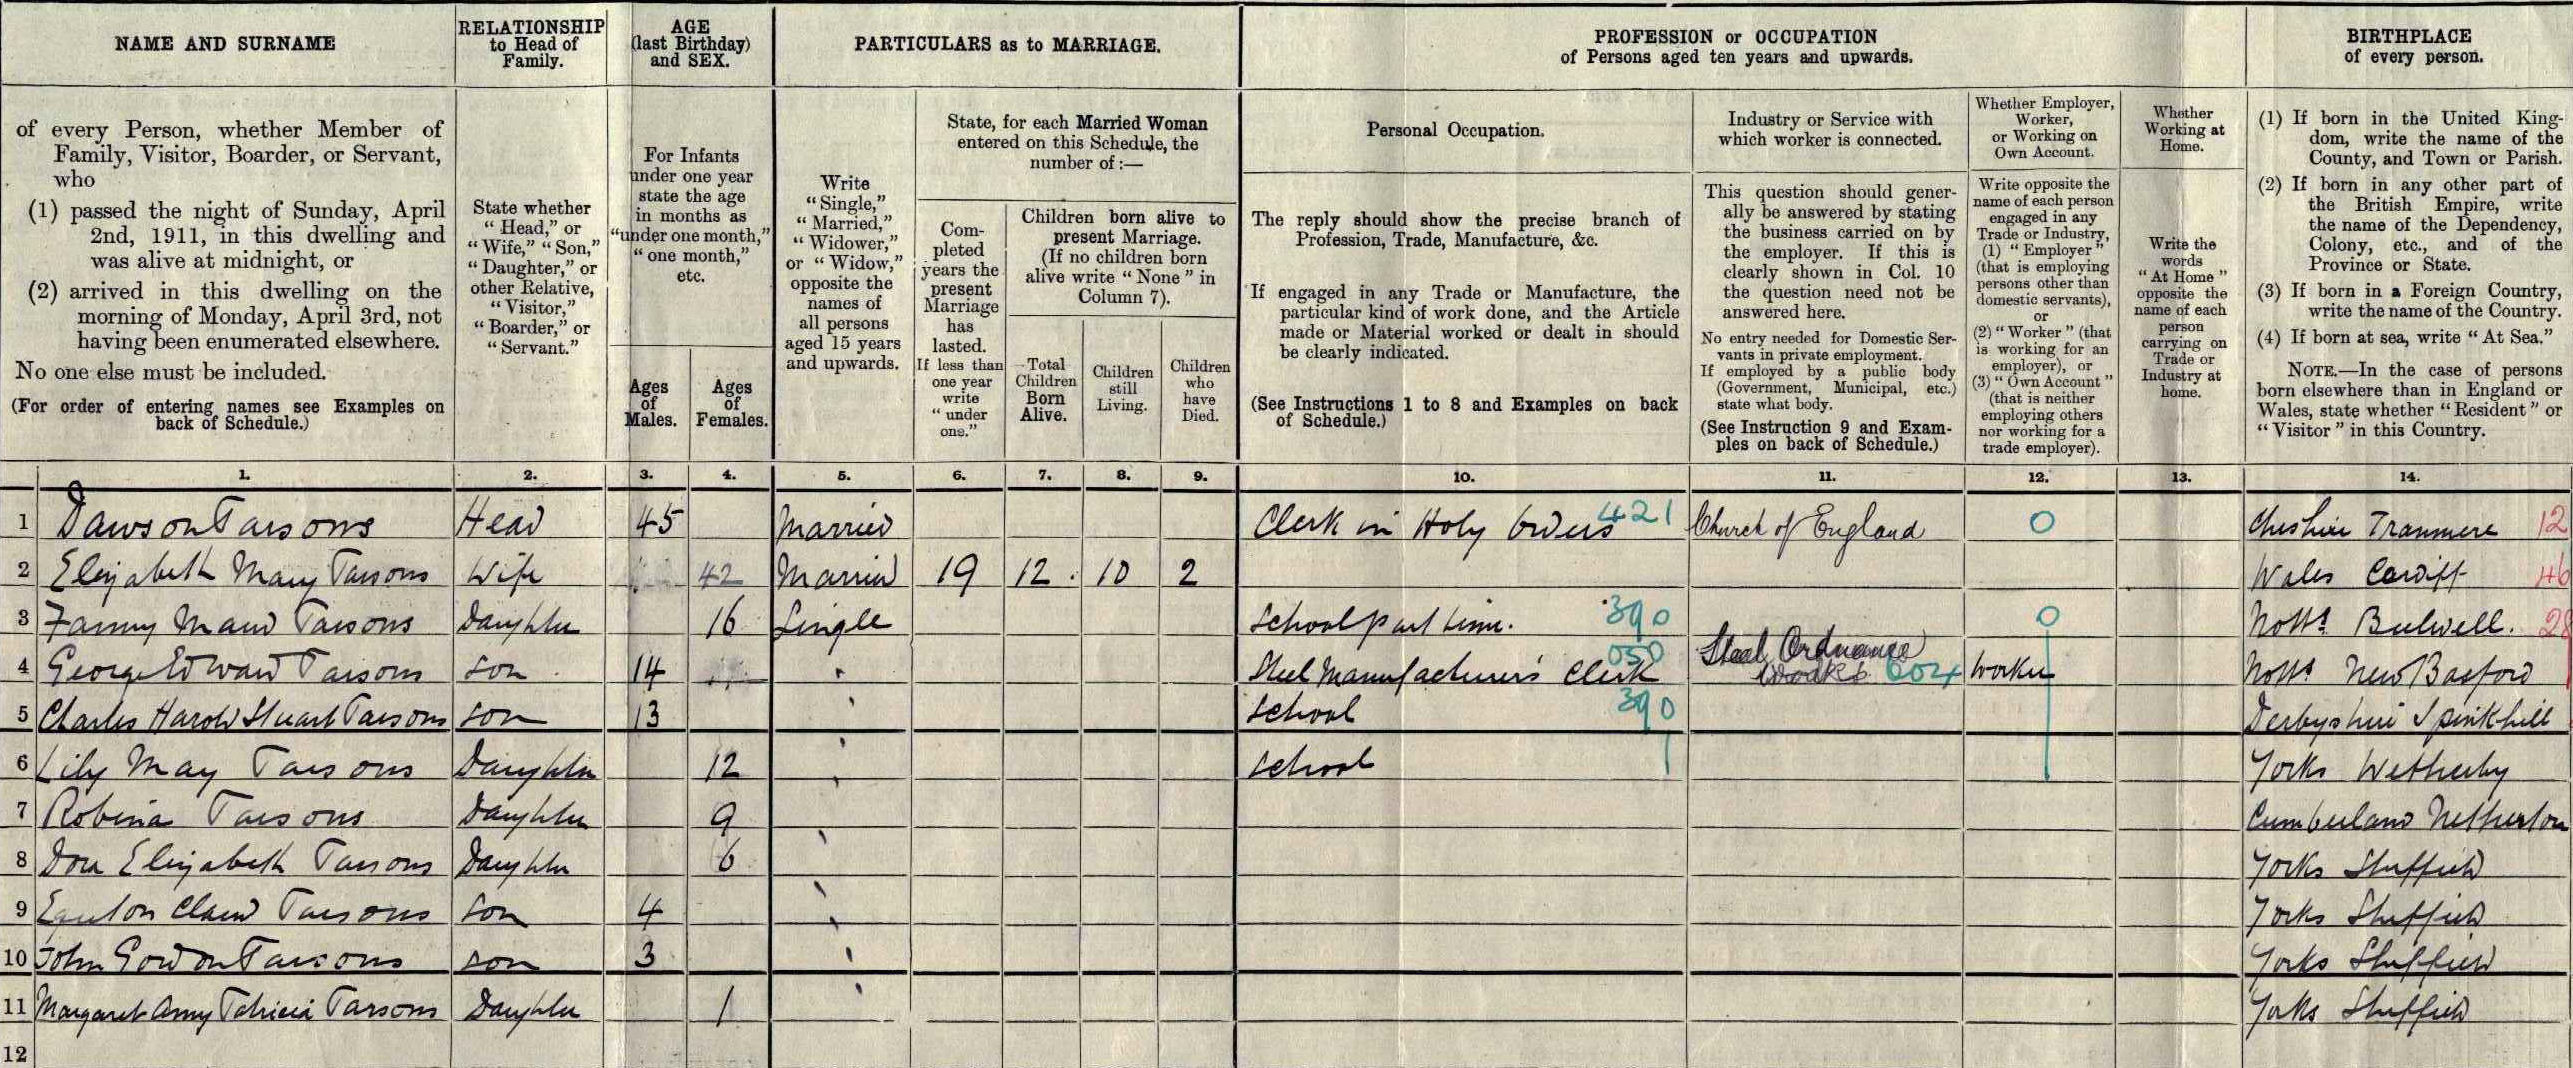 NAME AND SURNAME
RELATIONSHIP
to Head of
Family.
AGE
(last Birthday)
and SEX.
PARTICULARS as to MARRIAGE.
PROFESSION or OCCUPATION
of Persons aged ten years and upwards.
BIRTHPLACE
of every person.
of every Person, whether Member of
Family, Visitor, Boarder, or Servant,
who
(1) passed the night of Sunday, April
2nd, 1911, in this dwelling and
was alive at midnight, or
(2) arrived in this dwelling on the
morning of Monday, April 3rd, not
having been enumerated elsewhere.
No one else must be included.
(For order of entering names see Examples on
back of Schedule.)
State whether
“Head,” or
“Wife,” “Son,”
“Daughter,” or
other Relative,
“Visitor,”
“Boarder,” or
“Servant.”
For Infants
under one year
state the age
in months as
“under one month,”
“one month,”
etc.
Ages
of
Males.
Ages
of
Females.
Write
“Single,”
“Married,”
“Widower,”
or “Widow,”
opposite the
names of
all persons
aged 15 years
and upwards.
State, for each Married Woman
entered on this Schedule, the
number of :—
Com-
pleted
years the
present
Marriage
has
lasted.
If less than
one year
write
“under
one.”
Children born alive to
present Marriage.
(If no children born
alive write “None” in
Column 7).
Total
Children
Born
Alive.
Children
still
Living.
Children
who
have
Died.
Personal Occupation.
The reply should show the precise branch of
Profession, Trade, Manufacture, &c.
If engaged in any Trade or Manufacture, the
particular kind of work done, and the Article
made or Material worked or dealt in should
be clearly indicated.
(See Instructions 1 to 8 and Examples on back
of Schedule.)
Industry or Service with
which worker is connected.
This question should gener-
ally be answered by stating
the business carried on by
the employer. If this is
clearly shown in Col. 10
the question need not be
answered here.
No entry needed for Domestic Ser-
vants in private employment.
If employed by a public body
(Government, Municipal, etc.)
state what body.
(See Instruction 9 and Exam-
ples on back of Schedule.)
Whether Employer,
Worker,
or Working on
Own Account.
Write opposite the
name of each person
engaged in any
Trade or Industry,
(1) “Employer”
(that is employing
persons other than
domestic servants),
or
(2) “Worker” (that
is working for an
employer), or
(3) “Own Account”
(that is neither
employing others
nor working for a
trade employer).
Whether
Working at
Home.
Write the
words
“At Home”
opposite the
name of each
person
carrying on
Trade or
Industry at
home.
(1) If born in the United King-
dom, write the name of the
County, and Town or Parish.
(2) If born in any other part of
the British Empire, write
the name of the Dependency,
Colony, etc., and of the
Province or State.
(3) If born in a Foreign Country,
write the name of the Country.
(4) If born at sea, write “At Sea.”
NOTE.—In the case of persons
born elsewhere than in England or
Wales, state whether “Resident” or
“Visitor” in this Country.
1. 2. 3. 4. 5. 6. 7. 8. 9. 10. 11. 12. 13. 14.
1 Dawson Parsons Head 45 Married Clerk in Holy Orders 421 Church of England 0 Cheshire Tranmere 12
2 Elizabeth Mary Parsons Wife 42 Married 19 12 10 2 Wales Cardiff 46
3 Fanny Maud Parsons Daughter 16 Single School part time. 390 0 Notts Bulwell. 28
4 George Edward Parsons Son 14 Steel Manufacturers Clerk 050 Steel Ordnance Works 604 Worker Notts New Basford
5 Charles Harold Stuart Parsons Son 13 School 390 Derbyshire Spinkhill
6 Lily May Parsons Daughter 12 School Yorks Wetherby
7 Robina Parsons Daughter 9 Cumberland Netherton
8 Dora Elizabeth Parsons Daughter 6 Yorks Sheffield
9 Parsons Son 4 Yorks Sheffield
10 John Gordon Parsons Son 3 Yorks Sheffield
11 Margaret Amy Patricia Parsons Daughter 1 Yorks Sheffield
12